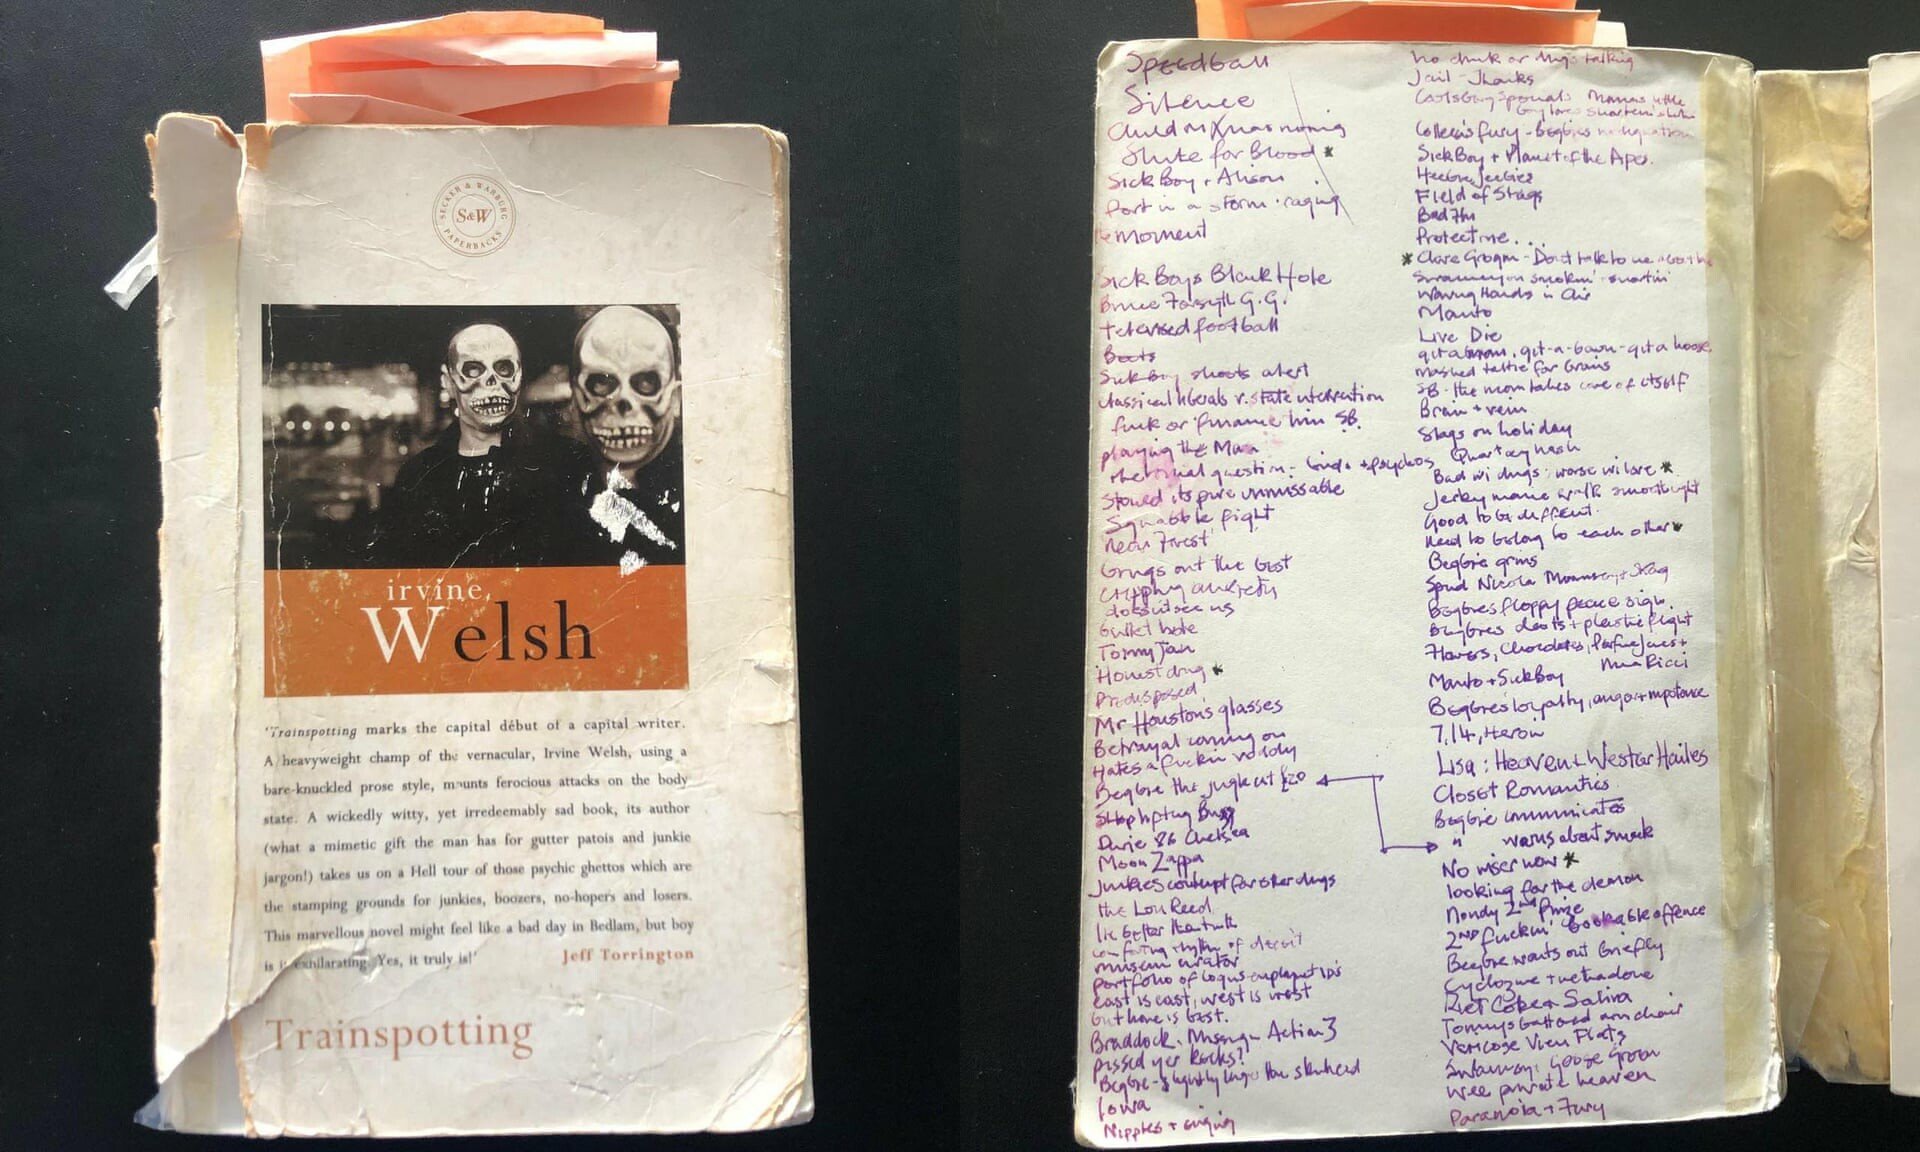 SECKER & WARBURG
S&W
PAPERBACKS
irvine
Welsh
'Trainspotting marks the capital début of a capital writer.
A heavyweight champ of the vernacular, Irvine Welsh, using a
bare-knuckled prose style, mounts ferocious attacks on the body
state. A wickedly witty, yet irredeemably sad book, its author
(what a mimetic gift the man has for gutter patois and junkie
jargon!) takes us on a Hell tour of those psychic ghettos which are
the stamping grounds for junkies, boozers, no-hopers and losers.
This marvellous novel might feel like a bad day in Bedlam, but boy
is it exhilarating. Yes, it truly is!' Jeff Torrington
Trainspotting
Speedball
Silence
Child on Xmas morning
Shute for Blood *
Sick Boy + Alison
Port in a storm - raging
Moment
Sick Boys Black Hole
Bruce Forsyth G.G.
televised football
Boots
Sick Boy shoots alert
Classical liberals v. state intervention
fuck or finance him SB.
playing the Man
rhetorical question - birds + psychos
Stoned its pure unmissable
Squabble fight
Near Forest
Brings out the best
anxiety
doesn't see us
bullet hole
Tommy Tam
Honest drug *
Predisposed
Mr Houstons glasses
Betrayal coming on
Hates a fuckin voddy
Begbie the jungle cat £20
Davie 86 Chelsea
Moon Zappa
Junkies contempt for other drugs
the Lou Reed
museum curator
portfolio of bogus employment
east is east, west is west
but home is best.
Braddock. Missing in Action 3
pissed yer keeks?
Begbie - slightly larger than skinhead
Iowa
Nipples + singing
no chunk or drugs talking
Jail - Thanks
Carlsberg Specials
Colleen's fury - Begbies
Sick Boy + Planet of the Apes.
Heebie Jeebies
Field of Stags
Bad Thi
Protect me...
* Clare Grogan - Don't talk to me about love
Waving Hands in Air
Manto
Live Die
git a bairn - git a hoose
mashed tattie for brains
SB. the morn takes care of itself
Brain + vein
Stags on holiday
Quarter hash
Bad wi drugs, worse wi love *
Jerky manic walk
Good to be different.
Need to belong to each other *
Begbie grins
Spud Nicola
Begbies floppy peace sign.
Begbies darts + plastic fight
Flowers, Chocolates, Perfume
Nina Ricci
Manto + Sick Boy
Begbies loyalty, anger + impotence
7, 14, Heroin
Lisa: Heaven + Wester Hailes
Closet Romantics
Begbie communicates
" warns about smack
No miser now *
looking for the demon
2nd Prize
2nd fuckin' bookable offence
Begbie wants out briefly
Cyclozine + methadone
Diet Coke + Saliva
Tommys battered arm chair
Varicose Vein Flats
Swanney: Goose Green
wee private heaven
Paranoia + Fury